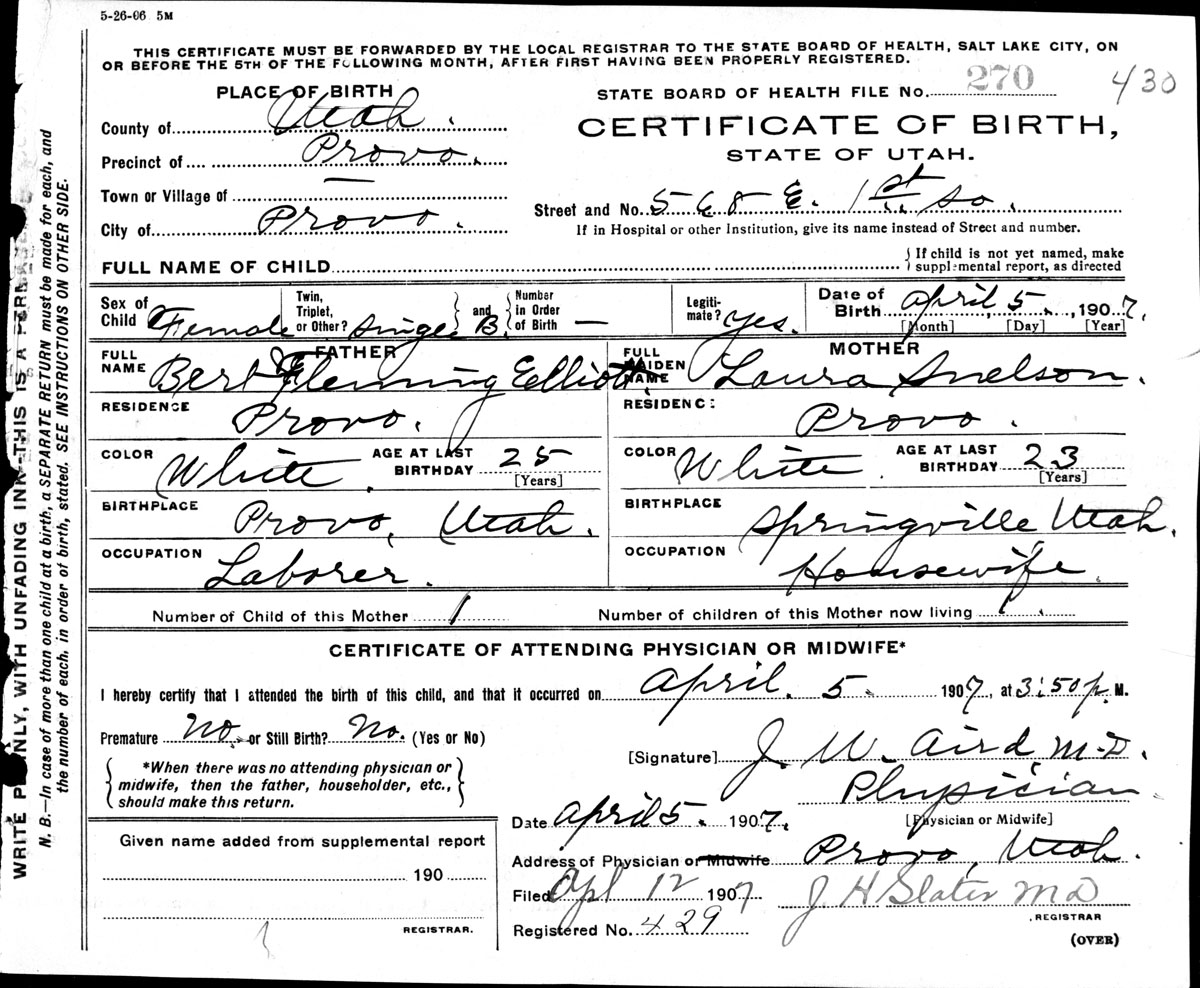 5-26-06 5M
THIS CERTIFICATE MUST BE FORWARDED BY THE LOCAL REGISTRAR TO THE STATE BOARD OF HEALTH, SALT LAKE CITY, ON
OR BEFORE THE 5TH OF THE FOLLOWING MONTH, AFTER FIRST HAVING BEEN PROPERLY REGISTERED.
PLACE OF BIRTH
STATE BOARD OF HEALTH FILE No. 270 430
County of Utah.
CERTIFICATE OF BIRTH,
Precinct of Provo.
STATE OF UTAH.
Town or Village of —
Street and No. 568 E. 1st So.
City of Provo.
If in Hospital or other Institution, give its name instead of Street and number.
FULL NAME OF CHILD
If child is not yet named, make
supplemental report, as directed
Sex of Child Female
Twin, Triplet, or Other? Single
and B.
Number in Order of Birth —
Legiti-mate? Yes.
Date of Birth April 5, 1907.
[Month] [Day] [Year]
FATHER
FULL NAME Bert Fleming Elliott
RESIDENCE Provo.
COLOR White.
AGE AT LAST BIRTHDAY 25
[Years]
BIRTHPLACE Provo, Utah.
OCCUPATION Laborer.
MOTHER
FULL MAIDEN NAME Laura Snelson.
RESIDENCE Provo.
COLOR White
AGE AT LAST BIRTHDAY 23
[Years]
BIRTHPLACE Springville Utah.
OCCUPATION Housewife.
Number of Child of this Mother 1
Number of children of this Mother now living 1.
CERTIFICATE OF ATTENDING PHYSICIAN OR MIDWIFE*
I hereby certify that I attended the birth of this child, and that it occurred on April 5. 1907, at 3:50 p. M.
Premature No. or Still Birth? No. (Yes or No)
[Signature] J. W. Aird M-D.
*When there was no attending physician or
midwife, then the father, householder, etc.,
should make this return.
Physician
[Physician or Midwife]
Date April 5. 1907.
Address of Physician or Midwife Provo, Utah.
Filed Apl 12 1907 J H Slater M D
REGISTRAR
Registered No. 429
(OVER)
Given name added from supplemental report
190
REGISTRAR.
WRITE PLAINLY, WITH UNFADING INK—THIS IS A
N. B.—In case of more than one child at a birth, a SEPARATE RETURN must be made for each, and
the number of each, in order of birth, stated. SEE INSTRUCTIONS ON OTHER SIDE.